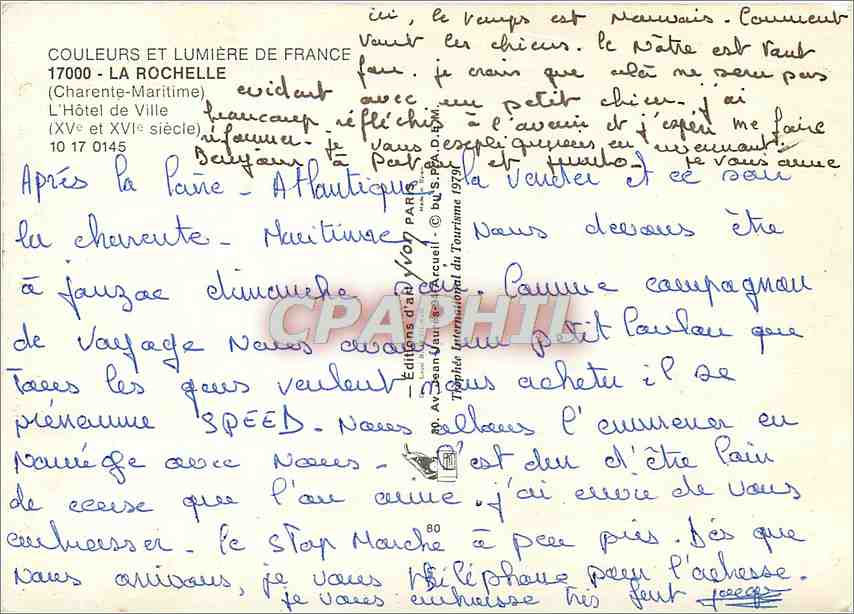 COULEURS ET LUMIÈRE DE FRANCE
17000 - LA ROCHELLE
(Charente-Maritime)
L'Hôtel de Ville
(XVe et XVIe siècle)
10 17 0145
ici, le temps est mauvais. Comment
vont les chiens. le Nôtre est tout
fou. je crois que cela ne sera pas
evidant avec un petit chien. j'ai
beaucoup réfléchis à l'avenir et j'espère me faire
réformer. je vous expliquerais en revenant.
Bonjour à et je vous aime
Après la Loire - Atlantique, la vendee et ce soir
la charente - Maritime. Nous devons être
à Jonzac dimanche soir. Comme compagnon
de voyage Nous avons un petit loulou que
Tous les gens veulent nous acheter il se
prénomme SPEED. Nous allons l'emmener en
Norvége avec Nous. C'est dur d'être loin
de ceuse que l'on aime. j'ai envie de vous
embrasser. le STOP Marche à peu près. Dès que
Nous arrivons, je vous téléphone pour l'adresse.
je vous embrasse très fort
— Éditions d'art YVON PARIS
80. Av. Jean Jaurès - 94 Arcueil - © by S.P.A.D.E.M.
Trophée International du Tourisme 1979
80
CPAPHIL